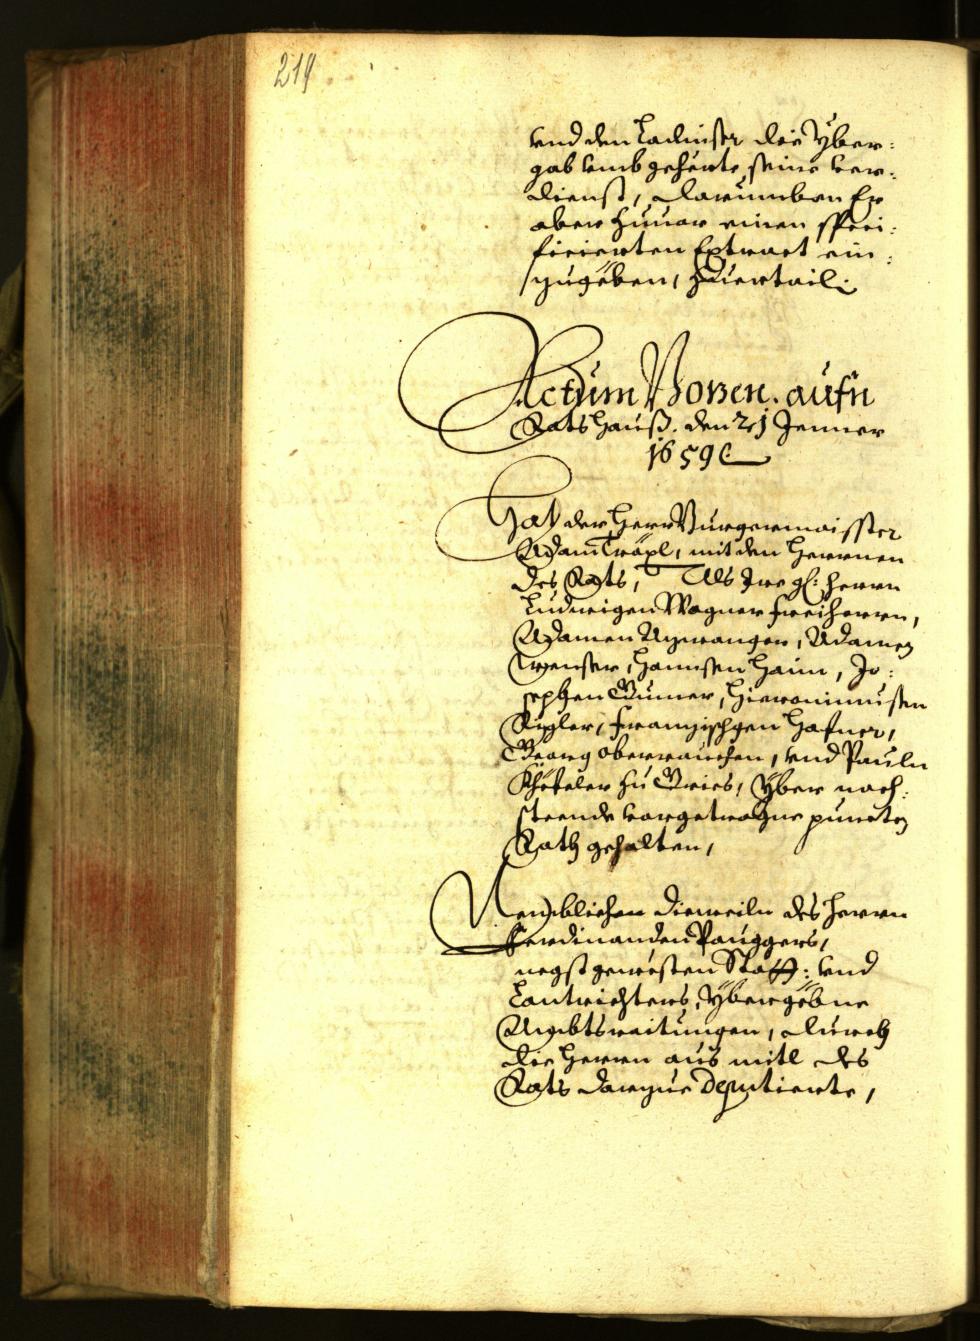 219
vnd den Ladinser die Yber:
gab vmb gehörte seine ver:
dienst, darumben Er
aber zuuor einen speci:
ficierten Extract ein:
zugeben,
Actum Bozen. aufm
Rats Hauß. den 21 Jenner
1659
Hat der Herr Burgermaister
Adam Träxl, mit den Herrnen
des Rats, Als Ire gl: Herrn
Ludwigen Wagner freiherrn,
Adamen
Hannsen Haim, Jo:
sephen Gumer, Hieronimußen
Rigler, Franzischgen Hafner,
Georg Oberrauchen, vnd Pauln
Khöfeler zu Gries, Yber nach:
steende vorgetragne puncten
Rath gehalten,
Nemblichen dieweiln des Herrn
Ferdinanden Pauggers,
negst gewesten Statt: vnd
Lantrichters, ybergebne
Ambtsraitungen, durch
die Herrn aus mitl des
Rats darzue Deputierte,